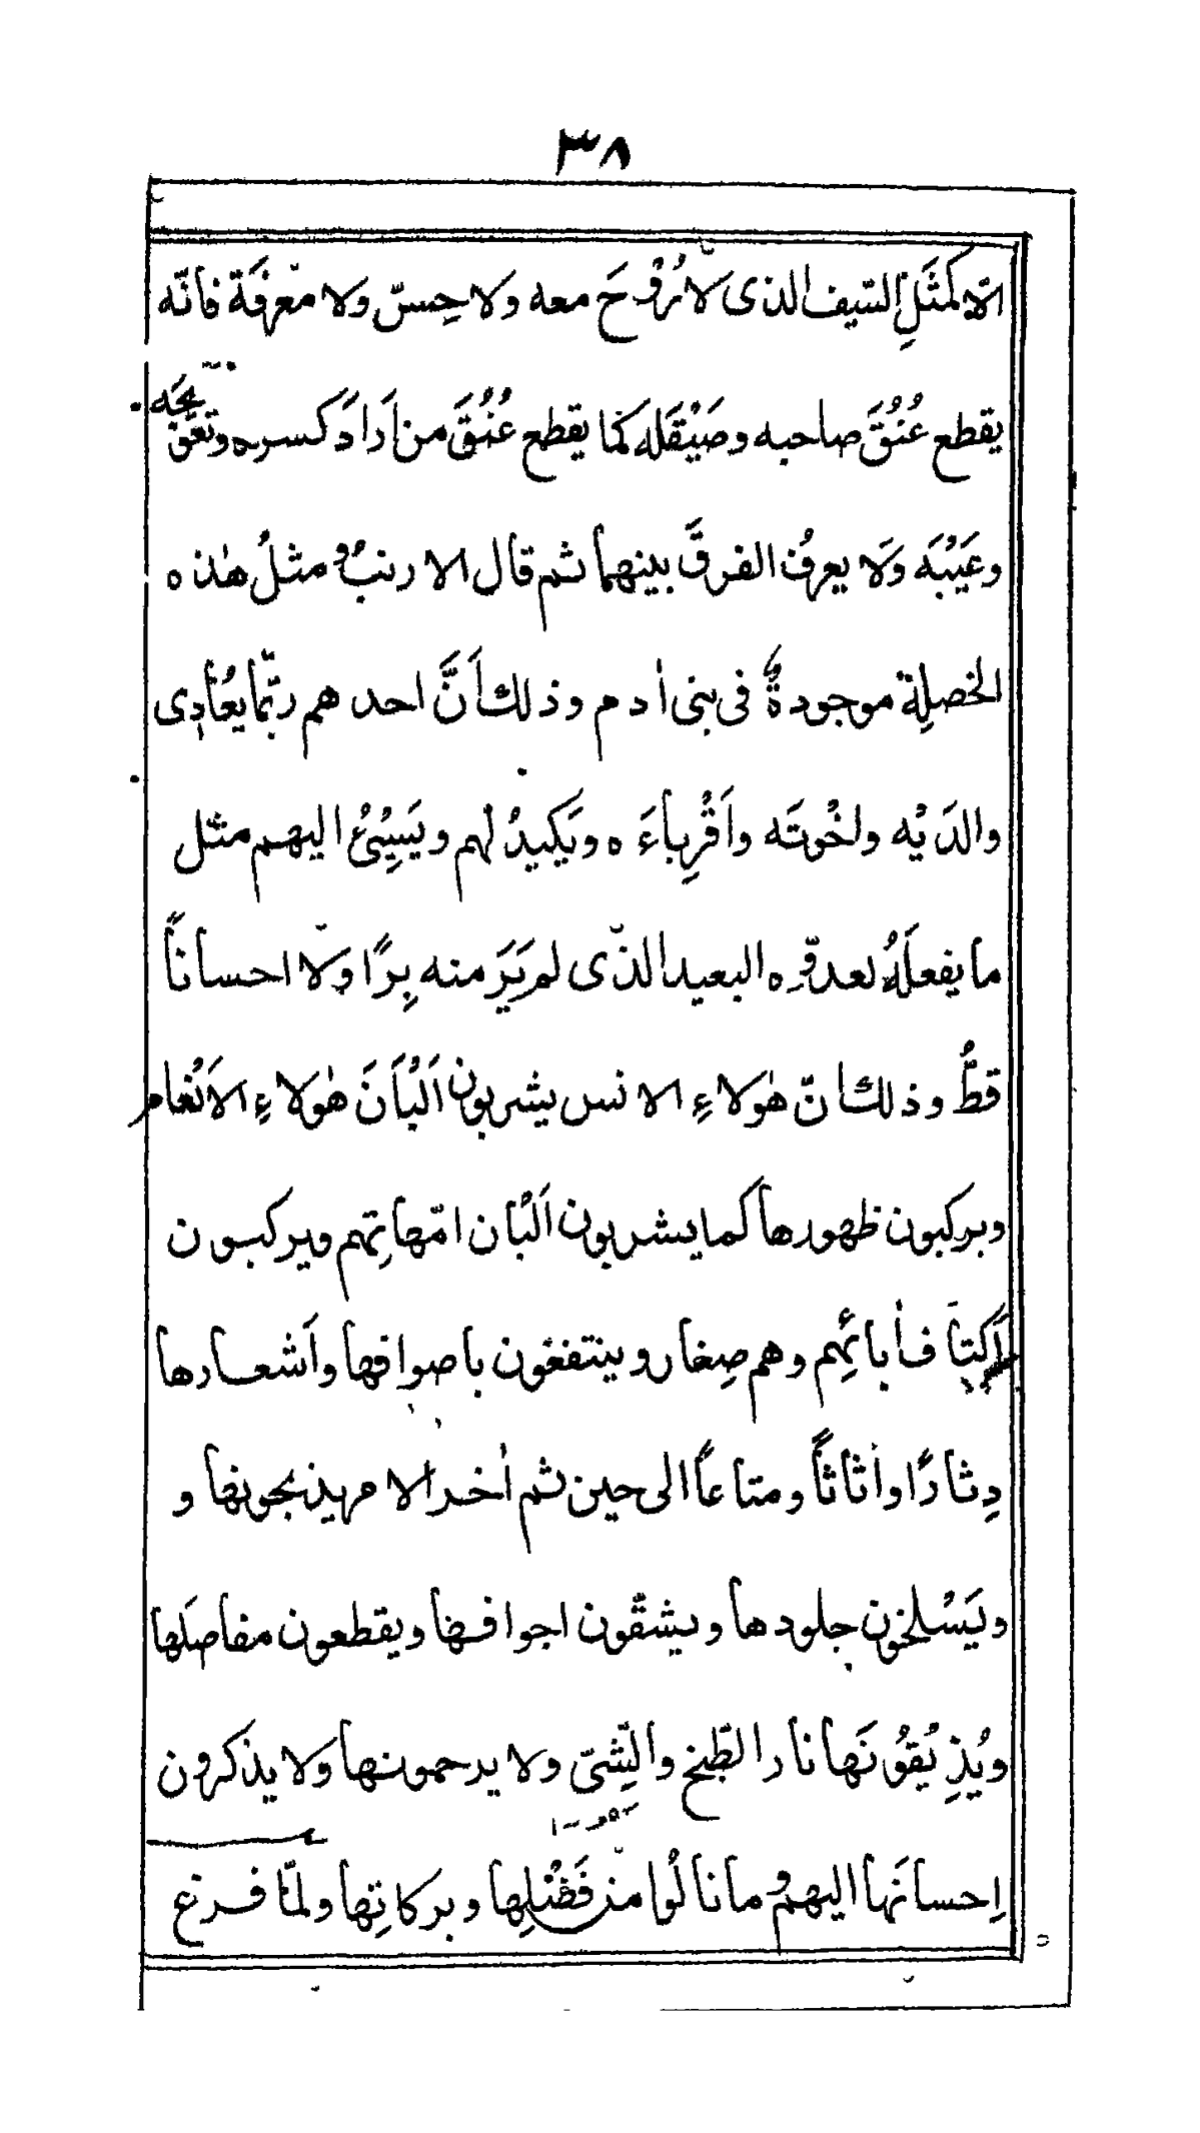 ٣٨
الّا كمَثَلِ السّيف الذى لا رُوْحَ معه ولا حِسّ ولا معْرِفَة فانّه
يقطع عُنُقَ صاحبه وصَيْقَله كما يقطع عُنُقَ من اَرادَ كسره وتعوّجَه
وعَيْبَه وَلا يعرفُ الفرقَ بينهما ثم قال الارنبُ ومثلُ هٰذه
الخصلِة موجودةٌ فى بنى اٰدم وذلك اَنَّ احدهم ربّما يُعادِى
والدَيْه واخْوتَه واَقْرِباءَه ويَكيدُ لهم ويَسِيْئُ اليهم مثل
ما يفعلَهُ لعدوّه البعيد الذّى لم يَرَ منه بِرًا ولا احساناً
قطُّ وذلك انّ هٰولاءِ الانس يشربون اَلْبْاَنَ هٰولاءِ الاَنْعام
ويركبون ظهورها كما يشربون اَلْبْان امّهاتِهم ويركبون
اَكتاَف اٰبائِهم وهم صِغار وينتفعون باصوافها واَشعارها
دِثارًا واٰثاثاً ومتاعاً الى حين ثم اٰخر الامر يذبحونها و
ويَسْلخون جلودها ويشقّون اجوافها ويقطعون مفاصَلها
ويُذِيْقُوْنَها نار الطّبخ والشِّىّ ولا يرحمونها ولا يذكرون
اِحسانَها اليهم وما نالُوا من فَضْلِها وبركاتِها ولمّا فرغ